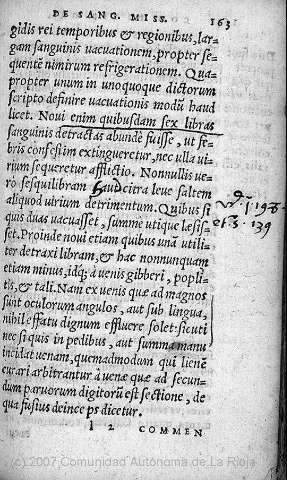 DE SANG. MISS. 163
gidis rei temporibus & regionibus, lar-
gam sanguinis vacuationem, propter se-
quentē nimirum refrigerationem. Qua-
propter unum in unoquoque dictorum
scripto definire vacuationis modū haud
licet. Novi enim quibusdam sex libras
sanguinis detractas abundè fuisse, ut fe-
bris confestim extingueretur, nec ulla vi-
rium sequeretur afflictio. Nonnullis ve-
ro sesquilibram haud citra leve saltem
aliquod virium detrimentum. Quibus si
quis duas vacuasset, summè utique læsis-
set. Proinde novi etiam quibus unā utili-
ter detraxi libram, & hac nonnunquam
etiam minus, idq; à venis gibberi, popli-
tis, & tali. Nam ex venis quæ ad magnos
sunt oculorum angulos, aut sub lingua,
nihil effatu dignum effluere solet: sicuti
nec si quis in pedibus, aut summa manu
incidat venam, quemadmodum qui lienē
curari arbitrantur à venæ quæ ad secun-
dum parvorum digitorū est sectione, de
qua fusius deinceps dicetur.
l 2 COMMEN
198
et 3. 139
(c) 2007 Comunidad Autónoma de La Rioja